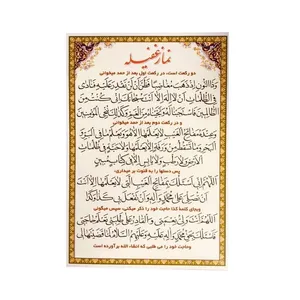 نماز غفیله
دو رکعت است، در رکعت اول بعد از حمد میخوانی
وَذَا النُّونِ إِذْ ذَهَبَ مُغَاضِبًا فَظَنَّ أَنْ لَنْ نَقْدِرَ عَلَيْهِ فَنَادَى
فِي الظُّلُمَاتِ أَنْ لَا إِلَهَ إِلَّا أَنْتَ سُبْحَانَكَ إِنِّي كُنْتُ مِنَ
الظَّالِمِينَ فَاسْتَجَبْنَا لَهُ وَنَجَّيْنَاهُ مِنَ الْغَمِّ وَكَذَلِكَ نُنْجِي الْمُؤْمِنِينَ
و در رکعت دوم بعد از حمد میخوانی
وَعِنْدَهُ مَفَاتِحُ الْغَيْبِ لَا يَعْلَمُهَا إِلَّا هُوَ وَيَعْلَمُ مَا فِي الْبَرِّ وَ
الْبَحْرِ وَمَا تَسْقُطُ مِنْ وَرَقَةٍ إِلَّا يَعْلَمُهَا وَلَا حَبَّةٍ فِي ظُلُمَاتِ
الْأَرْضِ وَلَا رَطْبٍ وَلَا يَابِسٍ إِلَّا فِي كِتَابٍ مُبِينٍ
پس دستها را به قنوت بر میداری
اللَّهُمَّ إِنِّي أَسْأَلُكَ بِمَفَاتِحِ الْغَيْبِ الَّتِي لَا يَعْلَمُهَا إِلَّا أَنْتَ
أَنْ تُصَلِّيَ عَلَى مُحَمَّدٍ وَآلِهِ وَأَنْ تَفْعَلَ بِي كَذَا وَكَذَا
وبجای کلمه کذا حاجت خود را ذکر میکنی، سپس میگوئی
اللَّهُمَّ أَنْتَ وَلِيُّ نِعْمَتِي وَالْقَادِرُ عَلَى طَلِبَتِي تَعْلَمُ حَاجَتِي
فَأَسْأَلُكَ بِحَقِّ مُحَمَّدٍ وَآلِهِ عَلَيْهِ وَعَلَيْهِمُ السَّلَامُ لَمَّا قَضَيْتَهَا لِي
وحاجت خود را می طلبی که انشاء الله برآورده است